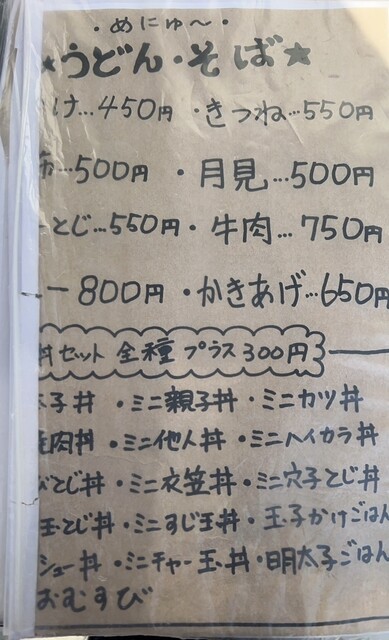 ・めにゅ〜・
★うどん・そば★
け…450円 ・きつね…550円
…500円 ・月見…500円
とじ…550円・牛肉…750円
ー800円・かきあげ…650円
丼セット 全種 プラス300円
子丼 ・ミニ親子丼・ミニカツ丼
肉丼 ・ミニ他人丼 ・ミニハイカラ丼
とじ丼 ・ミニ衣笠丼・ミニ穴子とじ丼
玉とじ丼・ミニすじ玉丼・玉子かけごはん
シュー丼 ・ミニチャー玉丼・明太子ごはん
おむすび